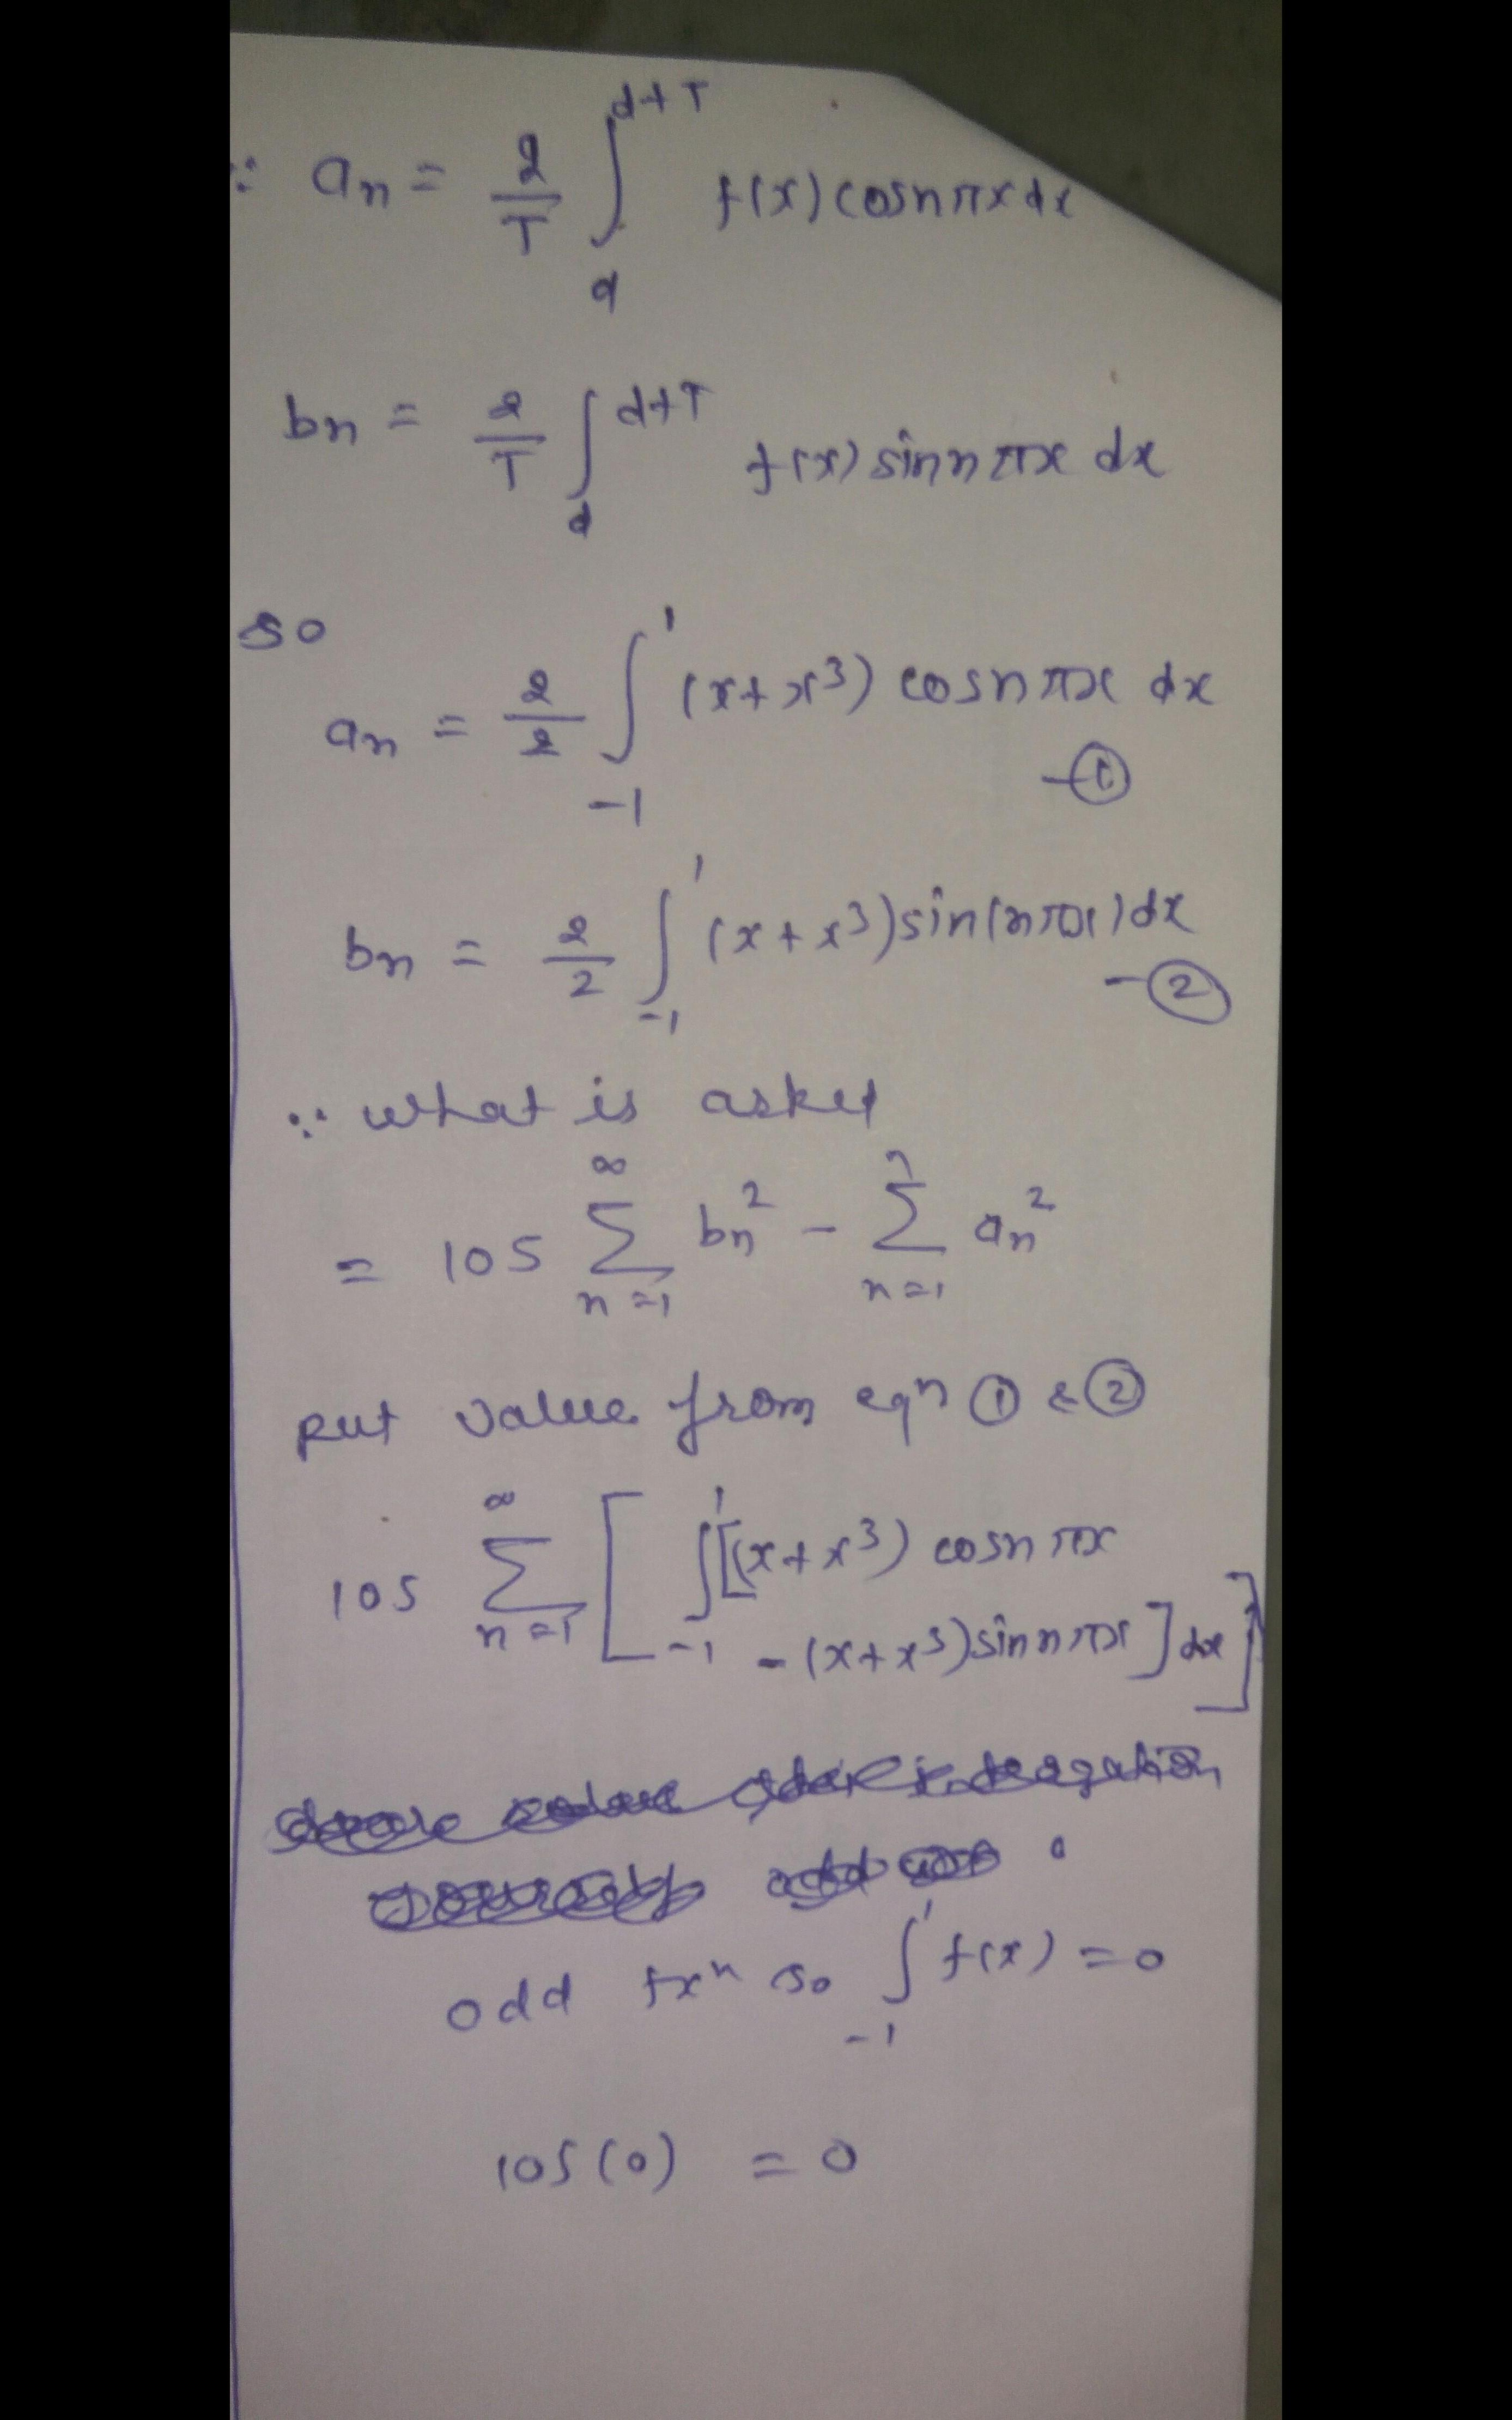 ∵ an = 2/T ∫_d^{d+T} f(x) cosnπx dx
bn = 2/T ∫_d^{d+T} f(x) sinnπx dx
so
an = 2/2 ∫_{-1}^{1} (x+x³) cosnπx dx
-①
bn = 2/2 ∫_{-1}^{1} (x+x³) sin(nπx) dx
-②
∵ what is asked
= 105 ∑_{n=1}^{∞} bn² - ∑_{n=1} an²
put value from eqn ① & ②
105 ∑_{n=1}^{∞} [ ∫_{-1}^{1} [(x+x³) cosnπx
- (x+x³) sinnπx ] dx ]
odd fxn so ∫_{-1}^{1} f(x) = 0
105(0) = 0